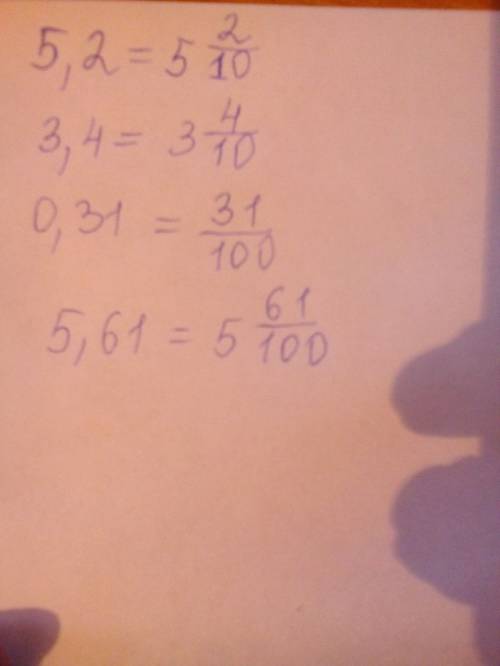 5,2 = 5 2/10
3,4 = 3 4/10
0,31 = 31/100
5,61 = 5 61/100